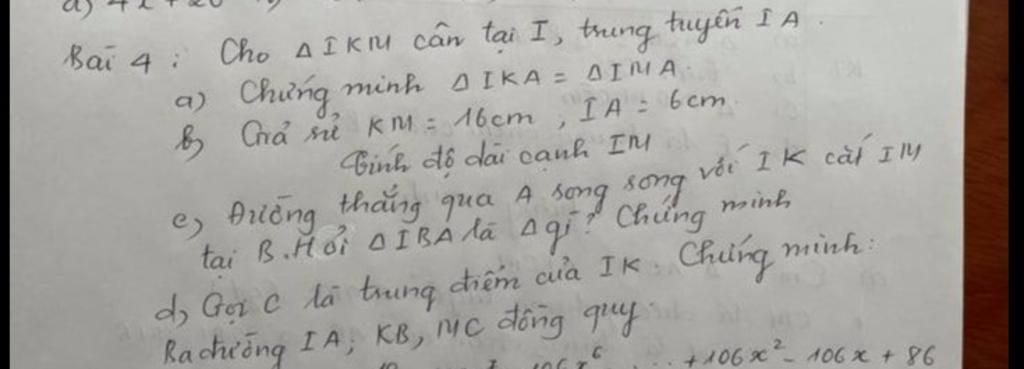 a) 4x + 20
Bài 4 : Cho Δ IKM cân tại I, trung tuyến IA.
a) Chứng minh Δ IKA = Δ IMA.
b) Giả sử KM = 16cm, IA = 6cm.
Tính độ dài cạnh IM
c) Đường thẳng qua A song song với IK cắt IM
tại B. Hỏi Δ IBA là Δ gì? Chứng minh
d) Gọi C là trung điểm của IK. Chứng minh:
Ba đường IA, KB, MC đồng quy.
106x⁶ ... + 106x² - 106x + 86